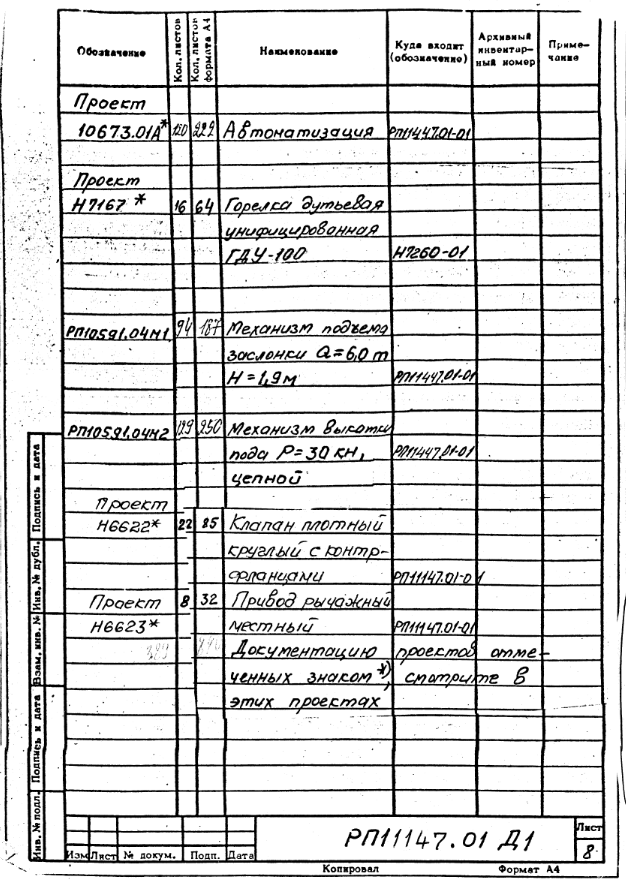 Обозначение Кол. листов Кол. листов формата А4 Наименование Куда входит (обозначение) Архивный инвентарный номер Примечание
Проект
10673.01А* 120 222 Автоматизация РП11147.01-01
Проект
Н7167 * 16 64 Горелка дутьевая
унифицированная
ГДУ-100 Н7260-01
РП10591.04М1 94 187 Механизм подъема
заслонки Q=6,0 т
Н=1,9м РП11447.01-01
РП10591.04М2 129 250 Механизм выкатки
пода Р=30 кН, РП11447.01-01
цепной
Проект
Н6622* 22 85 Клапан плотный
круглый с контр-
фланцами РП11147.01-01
Проект 8 32 Привод рычажный
Н6623* местный РП11147.01-01
Документацию проектов отме-
ченных знаком *), смотрите в
этих проектах
Инв. № подл. Подпись и дата Взам. инв. № Инв. № дубл. Подпись и дата
РП11147.01 Д1
Лист
8
Изм Лист № докум. Подп. Дата
Копировал Формат А4